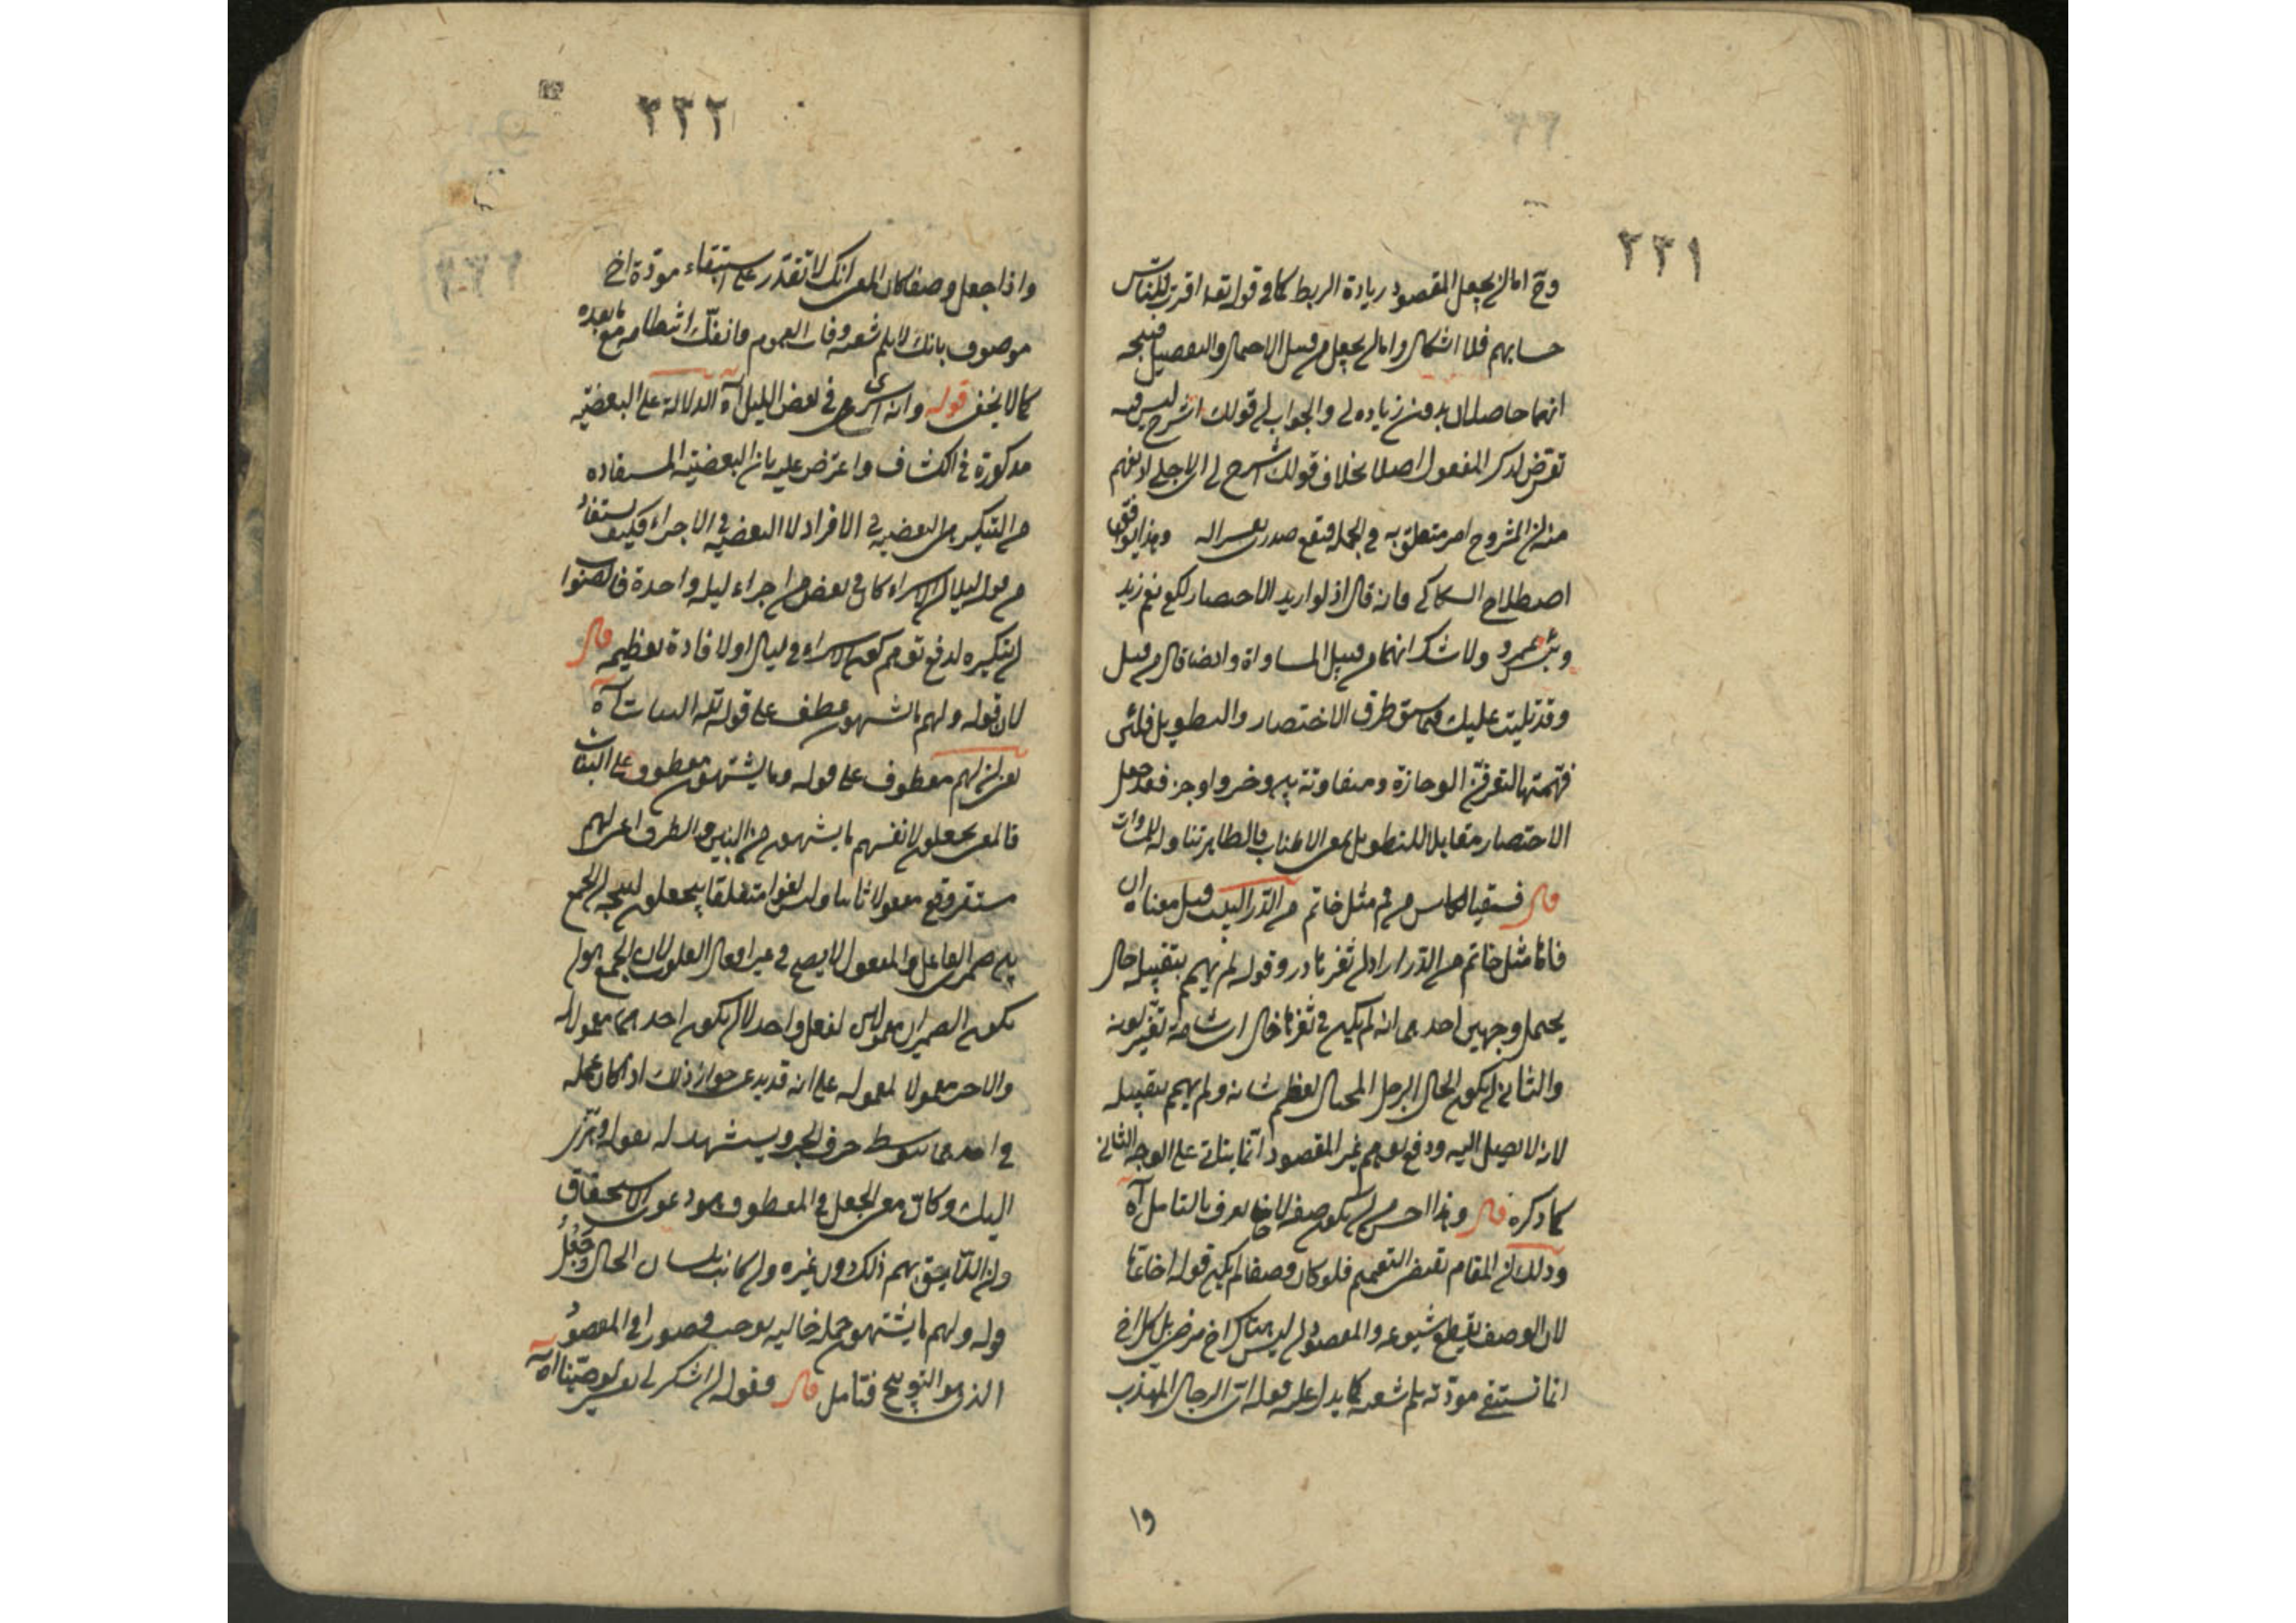 ٢٢١
وح اما ان يجعل المقصود زيادة الربط كما في قوله تعه اقترب للناس
حسابهم فلا اشكال واما ان يجعل من قبيل الاجمال والتفصيل فيتجه
انهما حاصلان بدون زيادة لي والجواب ان قولك اشرح ليس فيه
تعرض لذكر المفعول اصلا بخلاف قولك اشرح لي اي لاجلي لا يفهم
منه ان المشروح امر متعلق به في الجملة فيقع صدري تفسيرا له وهذا يوافق
اصطلاح السكاكي فانه قال اذ لو اريد الاختصار لكفى نعم زيد
وبئس عمرو ولا شك انهما من قبيل المساواة وايضا قال من قبل
وقد تليت عليك فيما سبق طرق الاختصار والتطويل فلئن
فهمتها لتعرفن الوجازة ومتفاوتة بين وجيز واوجز فقد جعل
الاختصار مقابلا للتطويل بمعنى الاطناب فالظاهر تناوله للمساوات
قال فسقيا لكاس من فم مثل خاتم من الدر البيت قيل معناه ان
فاها مثل خاتم من الدر اراد ان ثغرها در وقوله لم يهم بتقبيله خال
يحتمل وجهين احدهما انه لم يكن في ثغرها خال اي شامة تغير لونه
والثاني ان يكون الخال الرجل المختال لعظم شانه ولم يهم بتقبيله
لانه لا يصل اليه ودفع توهم غير المقصود انما يتاتى على الوجه الثاني
كما ذكره قال وهذا احسن من ان يكون صفة لاخ يعرف بالتامل آه
وذلك ان المقام يقتضي التعميم فلو كان وصفا لم يكن قوله اخا عاما
لان الوصف يقطع شيوعه والمقصود ان ليس هناك اخ مرضي بل كل اخ
انما تستبقي مودته بلم شعثه كما يدل عليه قوله اي الرجال المهذب
وا
٢٢٢
واذا جعل وصفا كان المعنى انك لا تقدر على استبقاء مودة اخ
موصوف بانك لا تلم شعثه وفات العموم وانفك انتظامه مع ما بعده
كما لا يخفى قوله وانه اسرى في بعض الليل آه الدلالة على البعضية
مذكورة في الكشاف واعترض عليه بان البعضية المستفادة
من التنكير هي البعضية في الافراد لا البعضية في الاجزاء فكيف يستفاد
من قوله ليلا ان الاسراء كان في بعض من اجزاء ليلة واحدة فالصواب
ان تنكيره لدفع توهم كون الاسراء في ليال او لافادة تعظيمه قال
لان قوله ولهم ما يشتهون عطف على قوله لله البنات آه
يعني ان لهم معطوف على قوله وما يشتهون معطوف على البنات
فالمعنى يجعلون لانفسهم ما يشتهون من البنين والظرف اعني لهم
مستقر وقع مفعولا ثانيا وليس لغوا متعلقا بيجعلون ليتجه ان الجمع
بين ضميري الفاعل والمفعول لا يصح في غير افعال القلوب لان الجمع هو ان
يكون الضميران معمولين لفعل واحد لا ان يكون احدهما معمولا له
والاخر معمولا لمعموله على انه قد يدعى جواز ذلك اذا كان عمله
في احدهما بتوسط حرف الجر ويستشهد له بقوله وهزي
اليك وكان معنى الجعل في المعطوف هو دعوى الاستحقاق
وان اللائق بهم ذلك دون غيره وان كانت بلسان الحال وجعل
قوله ولهم ما يشتهون جملة حالية يوجب قصورا في المقصود
الذي هو التوبيخ فتامل قال فقوله ان اشكر لي تفسير لوصينا آه